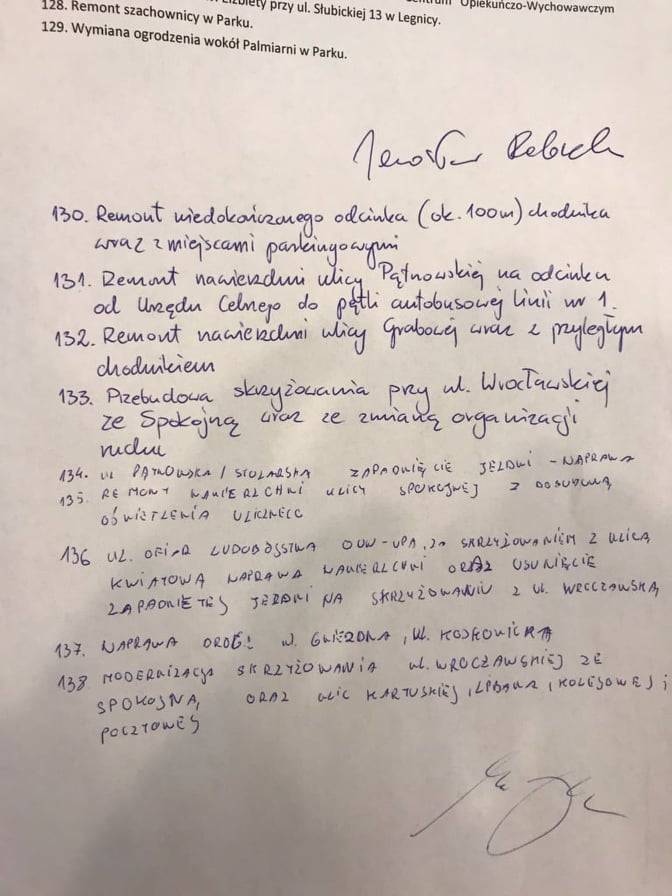 Opiekuńczo-Wychowawczym
przy ul. Słubickiej 13 w Legnicy.
128. Remont szachownicy w Parku.
129. Wymiana ogrodzenia wokół Palmiarni w Parku.
130. Remont niedokończonego odcinka (ok. 100m) chodnika
wraz z miejscami parkingowymi
131. Remont nawierzchni ulicy Pątnowskiej na odcinku
od Urzędu Celnego do pętli autobusowej linii nr 1.
132. Remont nawierzchni ulicy Grabowej wraz z przyległym
chodnikiem
133. Przebudowa skrzyżowania przy ul. Wrocławskiej
ze Spokojną wraz ze zmianą organizacji
ruchu
134. UL PĄTNOWSKA / STOLARSKA ZAPADNIĘCIE JEZDNI - NAPRAWA
135. REMONT NAWIERZCHNI ULICY SPOKOJNEJ Z DOBUDOWĄ
OŚWIETLENIA ULICZNEGO
136 UL. OFIAR LUDOBÓJSTWA OUN-UPA, ZE SKRZYŻOWANIEM Z ULICĄ
KWIATOWĄ NAPRAWA NAWIERZCHNI ORAZ USUNIĘCIE
ZAPADNIĘTEJ JEZDNI NA SKRZYŻOWANIU Z UL.
137. NAPRAWA DRÓG: UL. GWIEZDNA, UL.
138 MODERNIZACJA SKRZYŻOWANIA UL. WROCŁAWSKIEJ ZE
SPOKOJNĄ, ORAZ ULIC KARTUSKIEJ, KOLEJOWEJ I
POCZTOWEJ